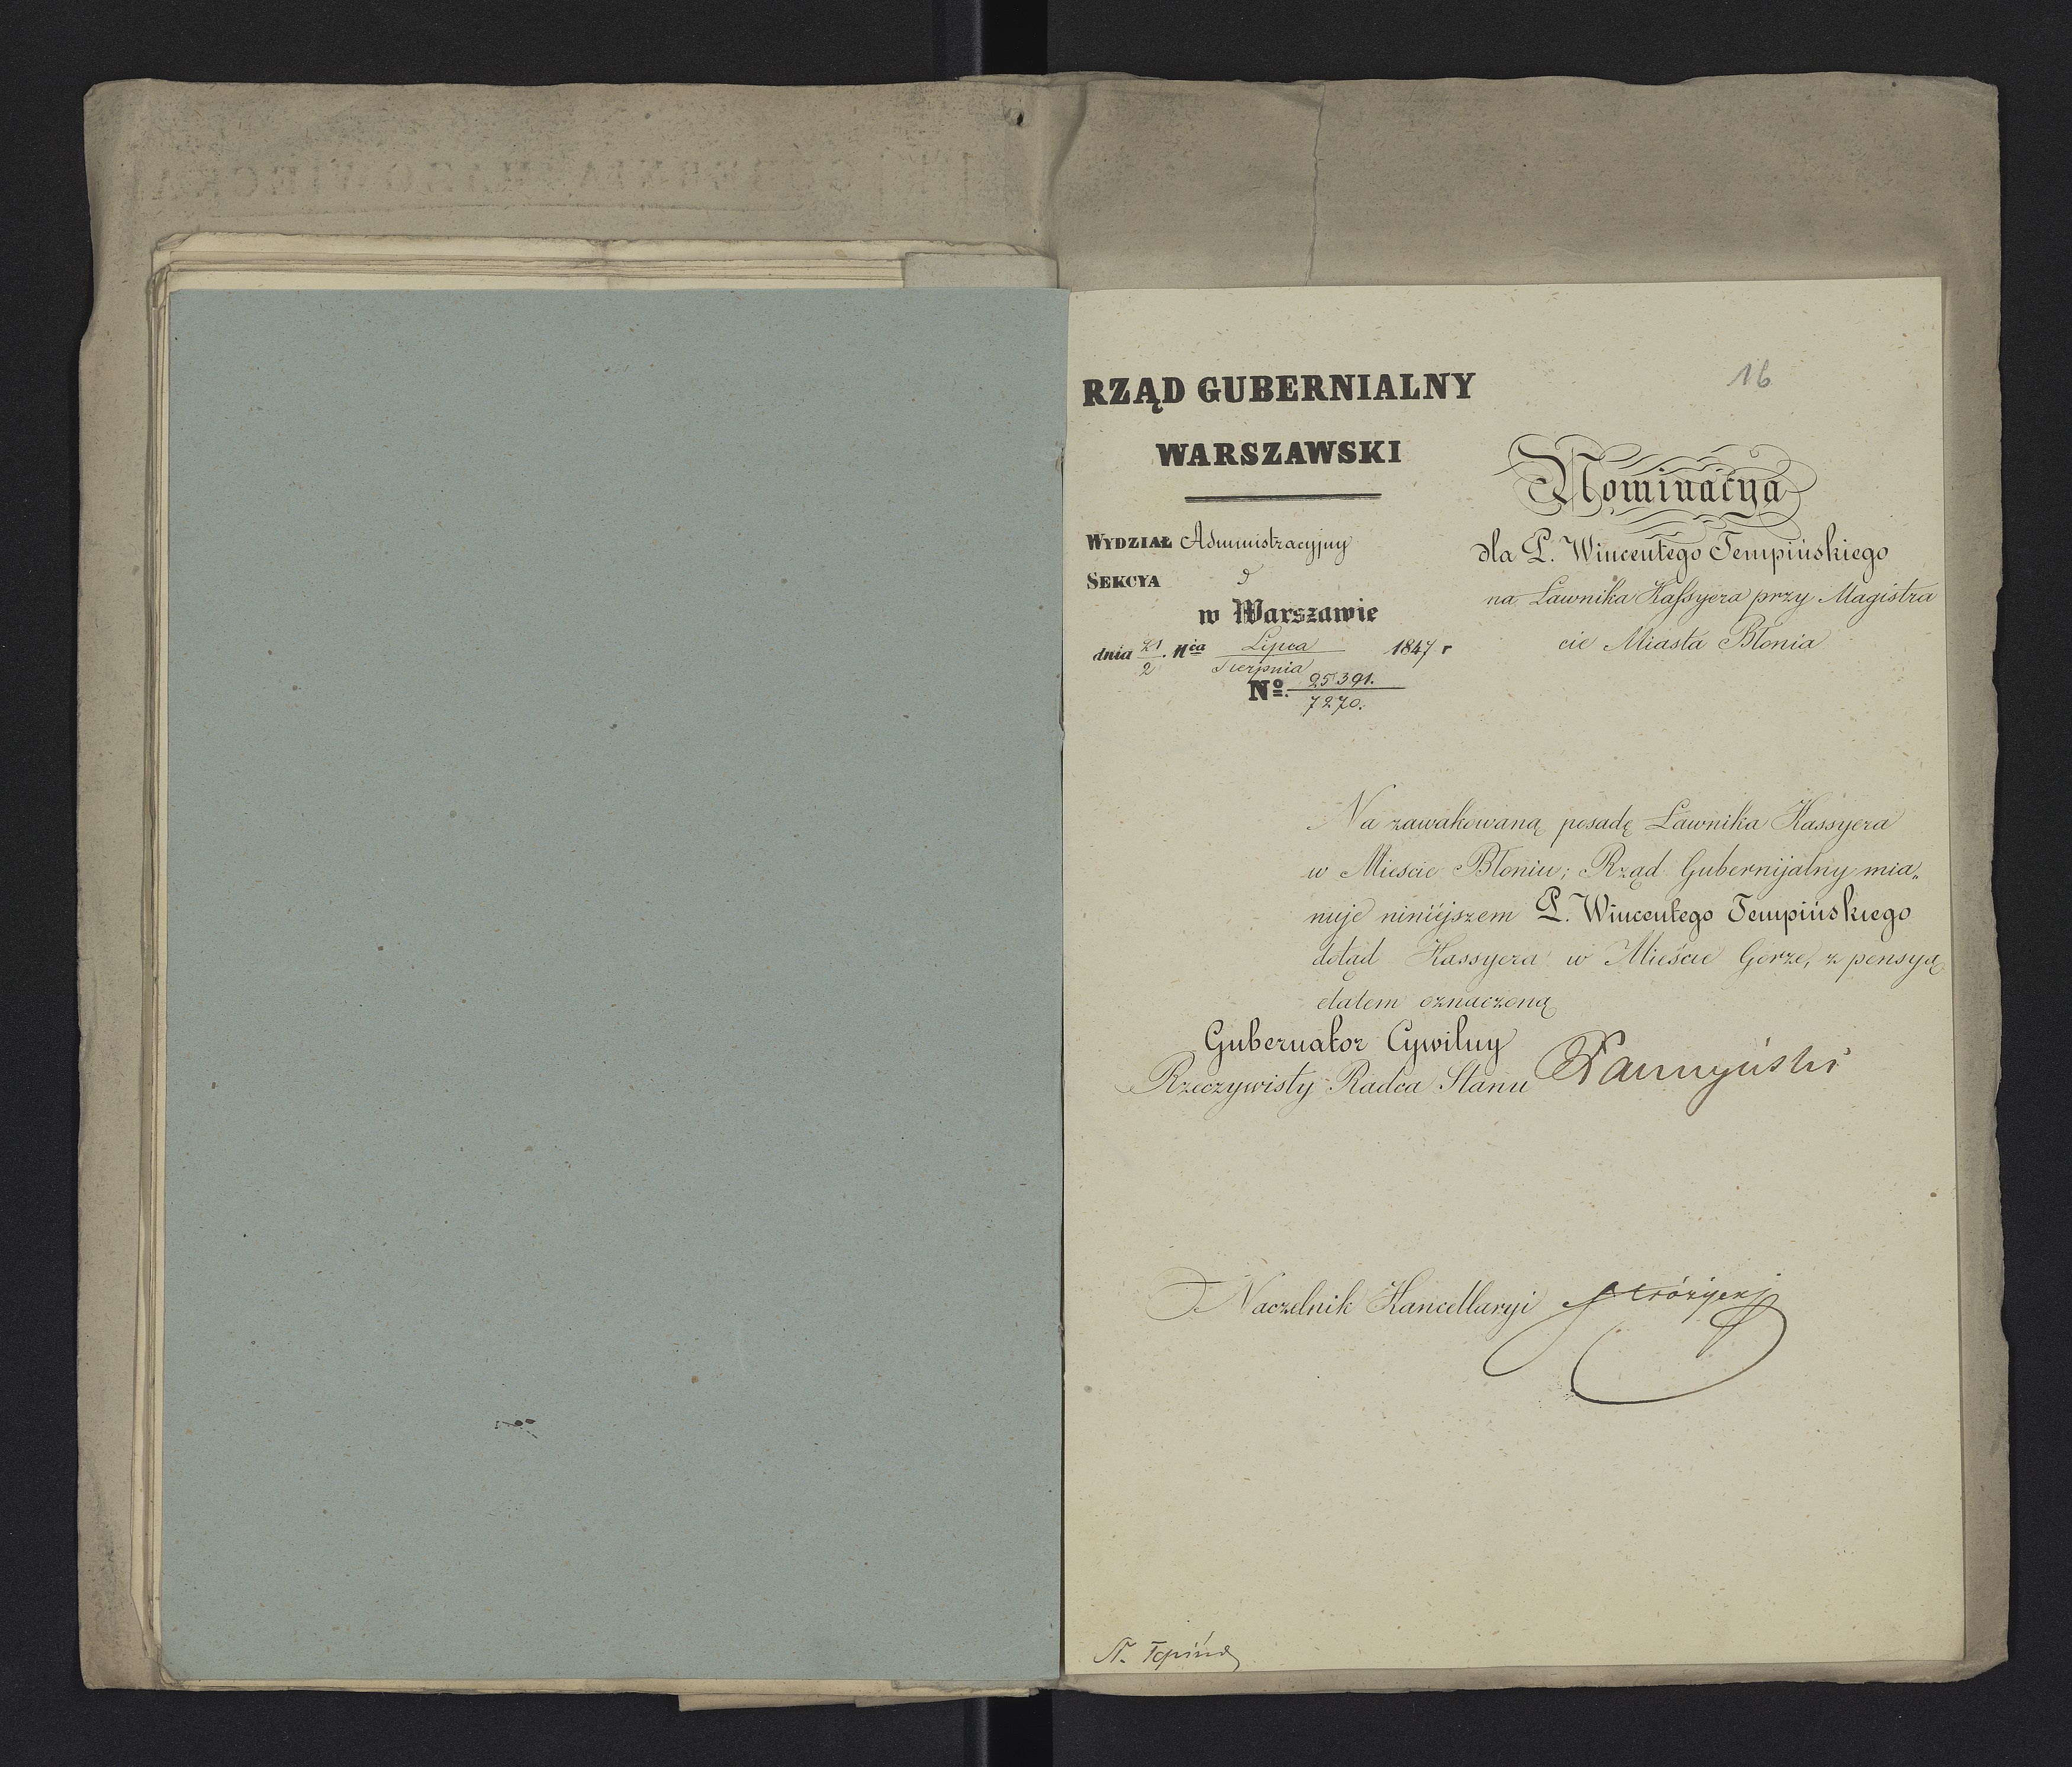 16
RZĄD GUBERNIALNY
WARSZAWSKI
WYDZIAŁ Administracyjny
SEKCYA
w Warszawie
dnia 21/2 Nca Lipca/Sierpnia 1847 r
No. 25391./7270.
Nominacya
dla P. Wincentego Tempińskiego
na Ławnika Kassyera przy Magistra
cie Miasta Błonia
Na zawakowaną posadę Ławnika Kassyera
w Mieście Błoniu; Rząd Gubernijalny mia„
nuje niniéjszem P. Wincentego Tempińskiego
dotąd Kassyera w Mieście Górze, z pensyą
etatem oznaczoną
Gubernator Cywilny
Rzeczywisty Radca Stanu
Naczelnik Kancellaryi